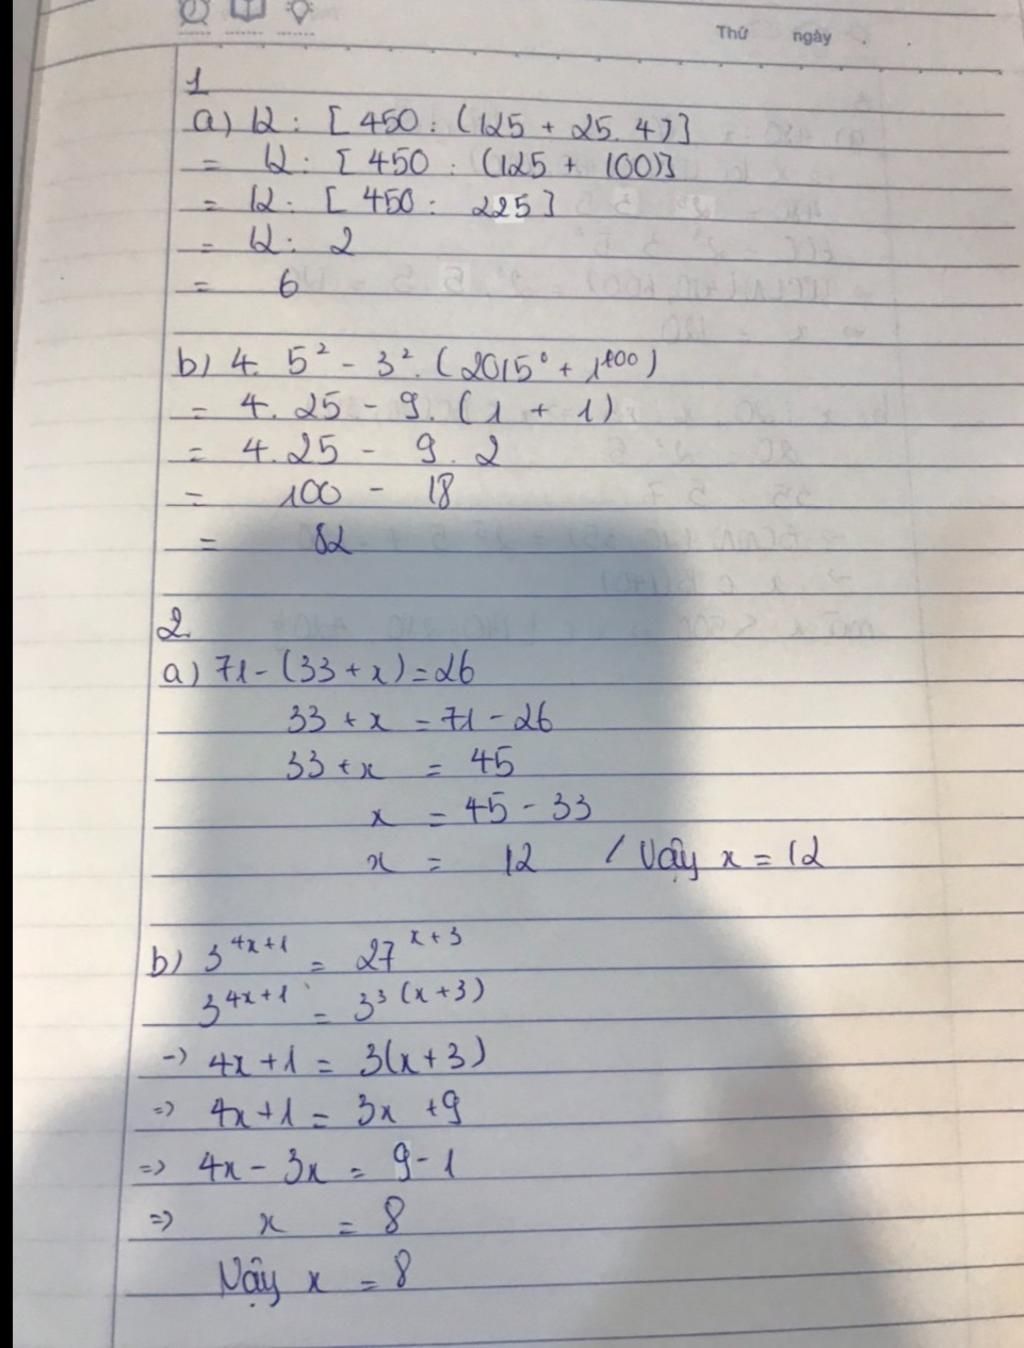 Thứ ngày . .
1
a) 12 : [450 : (125 + 25.4)]
= 12 : [450 : (125 + 100)]
= 12 : [450 : 225]
= 12 : 2
= 6
b) 4. 5² - 3². (2015⁰ + 1¹⁰⁰)
= 4.25 - 9. (1 + 1)
= 4.25 - 9.2
= 100 - 18
= 82
2.
a) 71 - (33 + x) = 26
33 + x = 71 - 26
33 + x = 45
x = 45 - 33
x = 12 / Vậy x = 12
b) 3^{4x+1} = 27^{x+3}
3^{4x+1} = 3^{3(x+3)}
-> 4x + 1 = 3(x + 3)
=> 4x + 1 = 3x + 9
=> 4x - 3x = 9 - 1
=> x = 8
Vậy x = 8